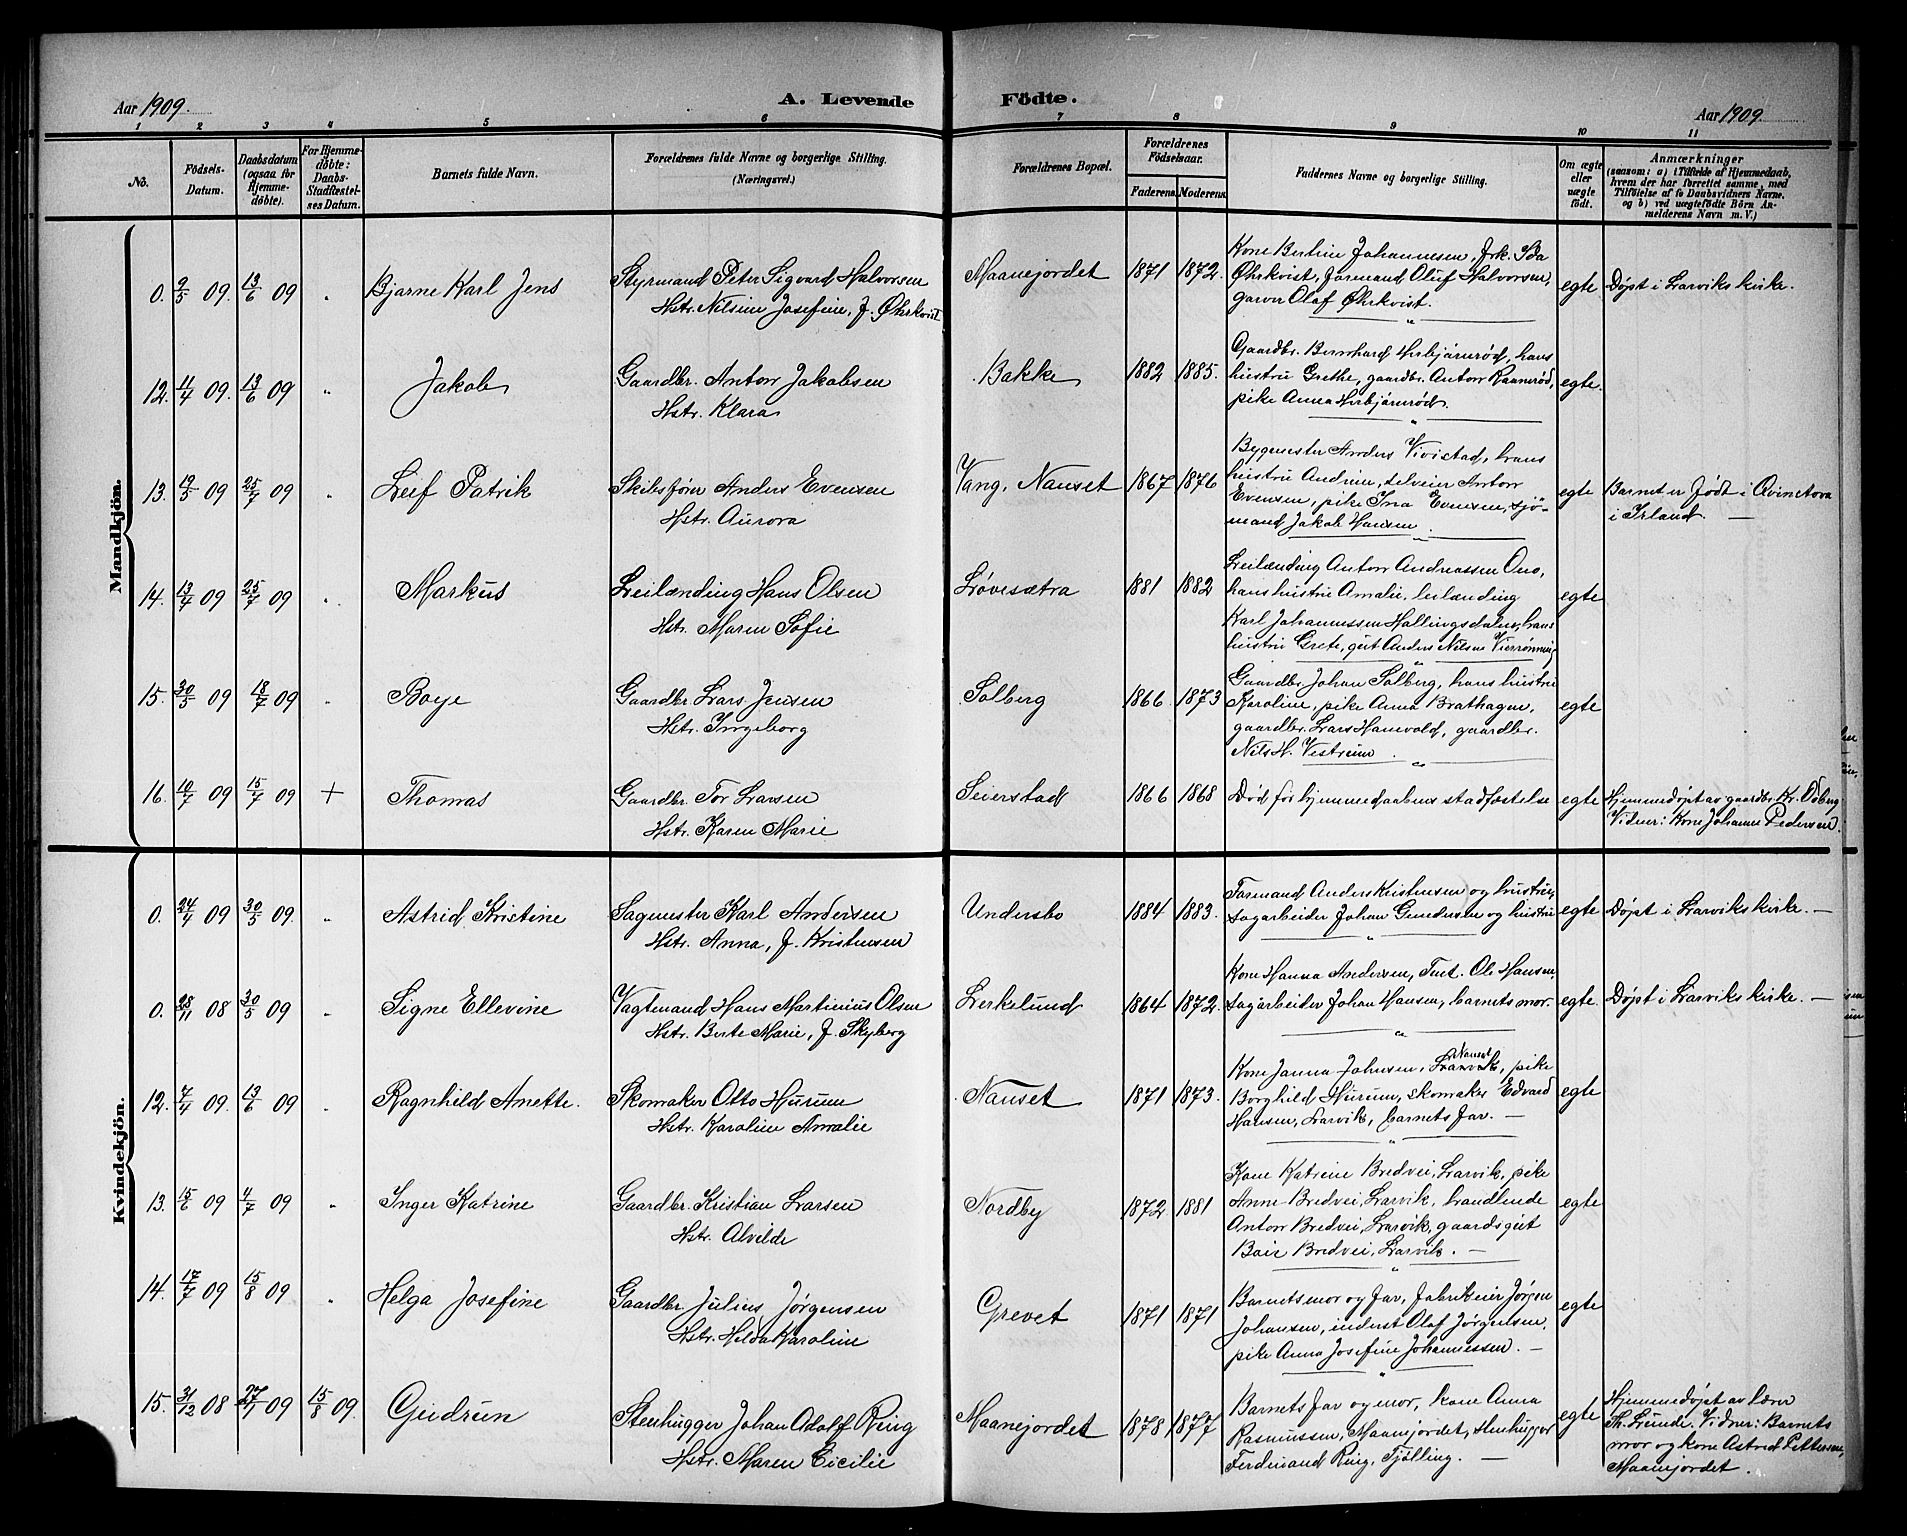 Aar 1909. A. Levende Födte. Aar 1909.
1 2 3 4 5 6 7 8 9 10 11
No. | Födsels-Datum. | Daabsdatum (ogsaa for Hjemmedöbte). | For Hjemmedöbte: Daabs-Stadfæstelses Datum. | Barnets fulde Navn. | Forældrenes fulde Navne og borgerlige Stilling. (Næringsvei.) | Forældrenes Bopæl. | Forældrenes Födselsaar. Faderens. Moderens. | Faddernes Navne og borgerlige Stilling. | Om ægte eller uægte födt. | Anmærkninger (saasom: a) i Tilfælde af Hjemmedaab, hvem der har forrettet samme, med Tilföielse af to Daabsvidners Navne. og b) ved uægtefödte Börn Anmelderens Navn m. V.)
Mandkjön.
0. 9/5 09. 13/6 09 " Bjarne Karl Jens
Styrmand Peter Sigvard Halvorsen
Hstr. Nilsine Josefine, f. Øhrkvist
Maanejordet 1871 1872.
Kone Bertine Johannesen, frk. Ida
Øhrkvist, formand Oluf Halvorsen,
garver Olaf Øhrkvist.
egte Døpt i Larviks kirke.
12. 11/4 09. 13/6 09 " Jakob
Gaardbr. Anton Jakobsen
Hstr. Klara
Bakke 1882 1885.
Gaardbr. Bernhard Herbjørnrød, hans
hustru Grethe, gaardbr. Anton Raanerød,
pike Anna Herbjørnrød.
egte.
13. 19/5 09 25/7 09 " Leif Patrik
Skibsfører Anders Evensen
Hstr. Aurora
Vang, Nauset 1867 1876
Bygmester Anders Vivistad, hans
hustru Andrine, selveier Anton
Evensen, pike Ina Evensen, sjö-
mand Jakob Hansen.
egte Barnet er født i
i Irland. —
14. 13/4 09 25/7 09 " Markus
Leilænding Hans Olsen
Hstr. Maren Sofie
Løvesætra 1881 1882
Leilænding Anton Andreassen Ono,
hans hustru Amalie, leilænding
Karl Johannessen Hallingsdalen, hans
hustru Grete, gut Anders Nilsen Vierrønning
egte
15. 30/5 09 18/7 09 " Boye
Gaardbr. Lars Jensen
Hstr. Ingeborg
Solberg 1866 1873
Gaardbr. Johan Solberg, hans hustru
Karoline, pike Anna Brathagen,
gaardbr. Lars Hanevold, gaardbr.
Nils H. Vestrum
egte
16. 10/7 09 15/7 09 + Thomas
Gaardbr. Tor Larsen
Hstr. Karen Marie
Seierstad 1866 1868
Død før hjemmedaabens stadfæstelse
egte Hjemmedøpt av gaardbr. Kr. Ödberg
Vidner: Kone Johanne Pedersen.
Kvindekjön.
0. 24/4 09 30/5 09. " Astrid Kristine
Sagmester Karl Andersen
Hstr. Anna, f. Kristensen
Undersbo 1884 1883.
Formand Anders Kristensen og hustru,
sagarbeider Johan Gundersen og hustru
egte Døpt i Larviks kirke. —
0. 28/11 08 30/5 09 " Signe Ellevine
Vagtmand Hans Martinius Olsen
Hstr. Berte Marie, f. Skyberg
Lerkelund 1864 1872.
Kone Hanna Andersen, Tmt. Ole Hansen,
sagarbeider Johan Hansen, barnets mor.
egte. Døpt i Larviks kirke. —
12. 7/4 09. 13/6 09 " Ragnhild Anette.
Skomaker Otto Hurum
Hstr. Karoline Amalie
Nauset 1871 1873.
Nauset
Kone Janna Johnsen, Larvik, pike
Borghild Hurum, skomaker Edvard
Hansen, Larvik, barnets far. —
egte
13. 15/6 09 4/7 09 " Inger Katrine
Gaardbr. Kristian Larsen
Hstr. Alvilde
Nordby 1872 1881
Kone Katrine Bredvei, Larvik, pike
Anne Bredvei, Larvik, handlende
Anton Bredvei, Larvik, gaardsgut
Boie Bredvei, Larvik. —
egte
14. 17/7 09 15/8 09 " Helga Josefine
Gaardbr. Julius Jørgensen
Hstr. Hilda Karoline
Grevet 1871 1871
Barnets mor og far, fabrikeier Jørgen
Johansen, inderst Olaf Jørgensen,
pike Anna Josefine Johannessen. —
egte
15. 31/12 08 27/1 09 15/8 09. Gudrun
Stenhugger Johan Adolf Ring
Hstr. Maren Cicilie
Maanejordet 1878 1877
Barnets far og mor, kone Anna
Rasmussen, Maanejordet, stenhugger
Ferdinand Ring, Tjølling. —
egte Hjemmedøpt av lærer
Th. Lunde. Vidner: Barnets
mor og kone Astrid Pettersen,
Maanejordet.